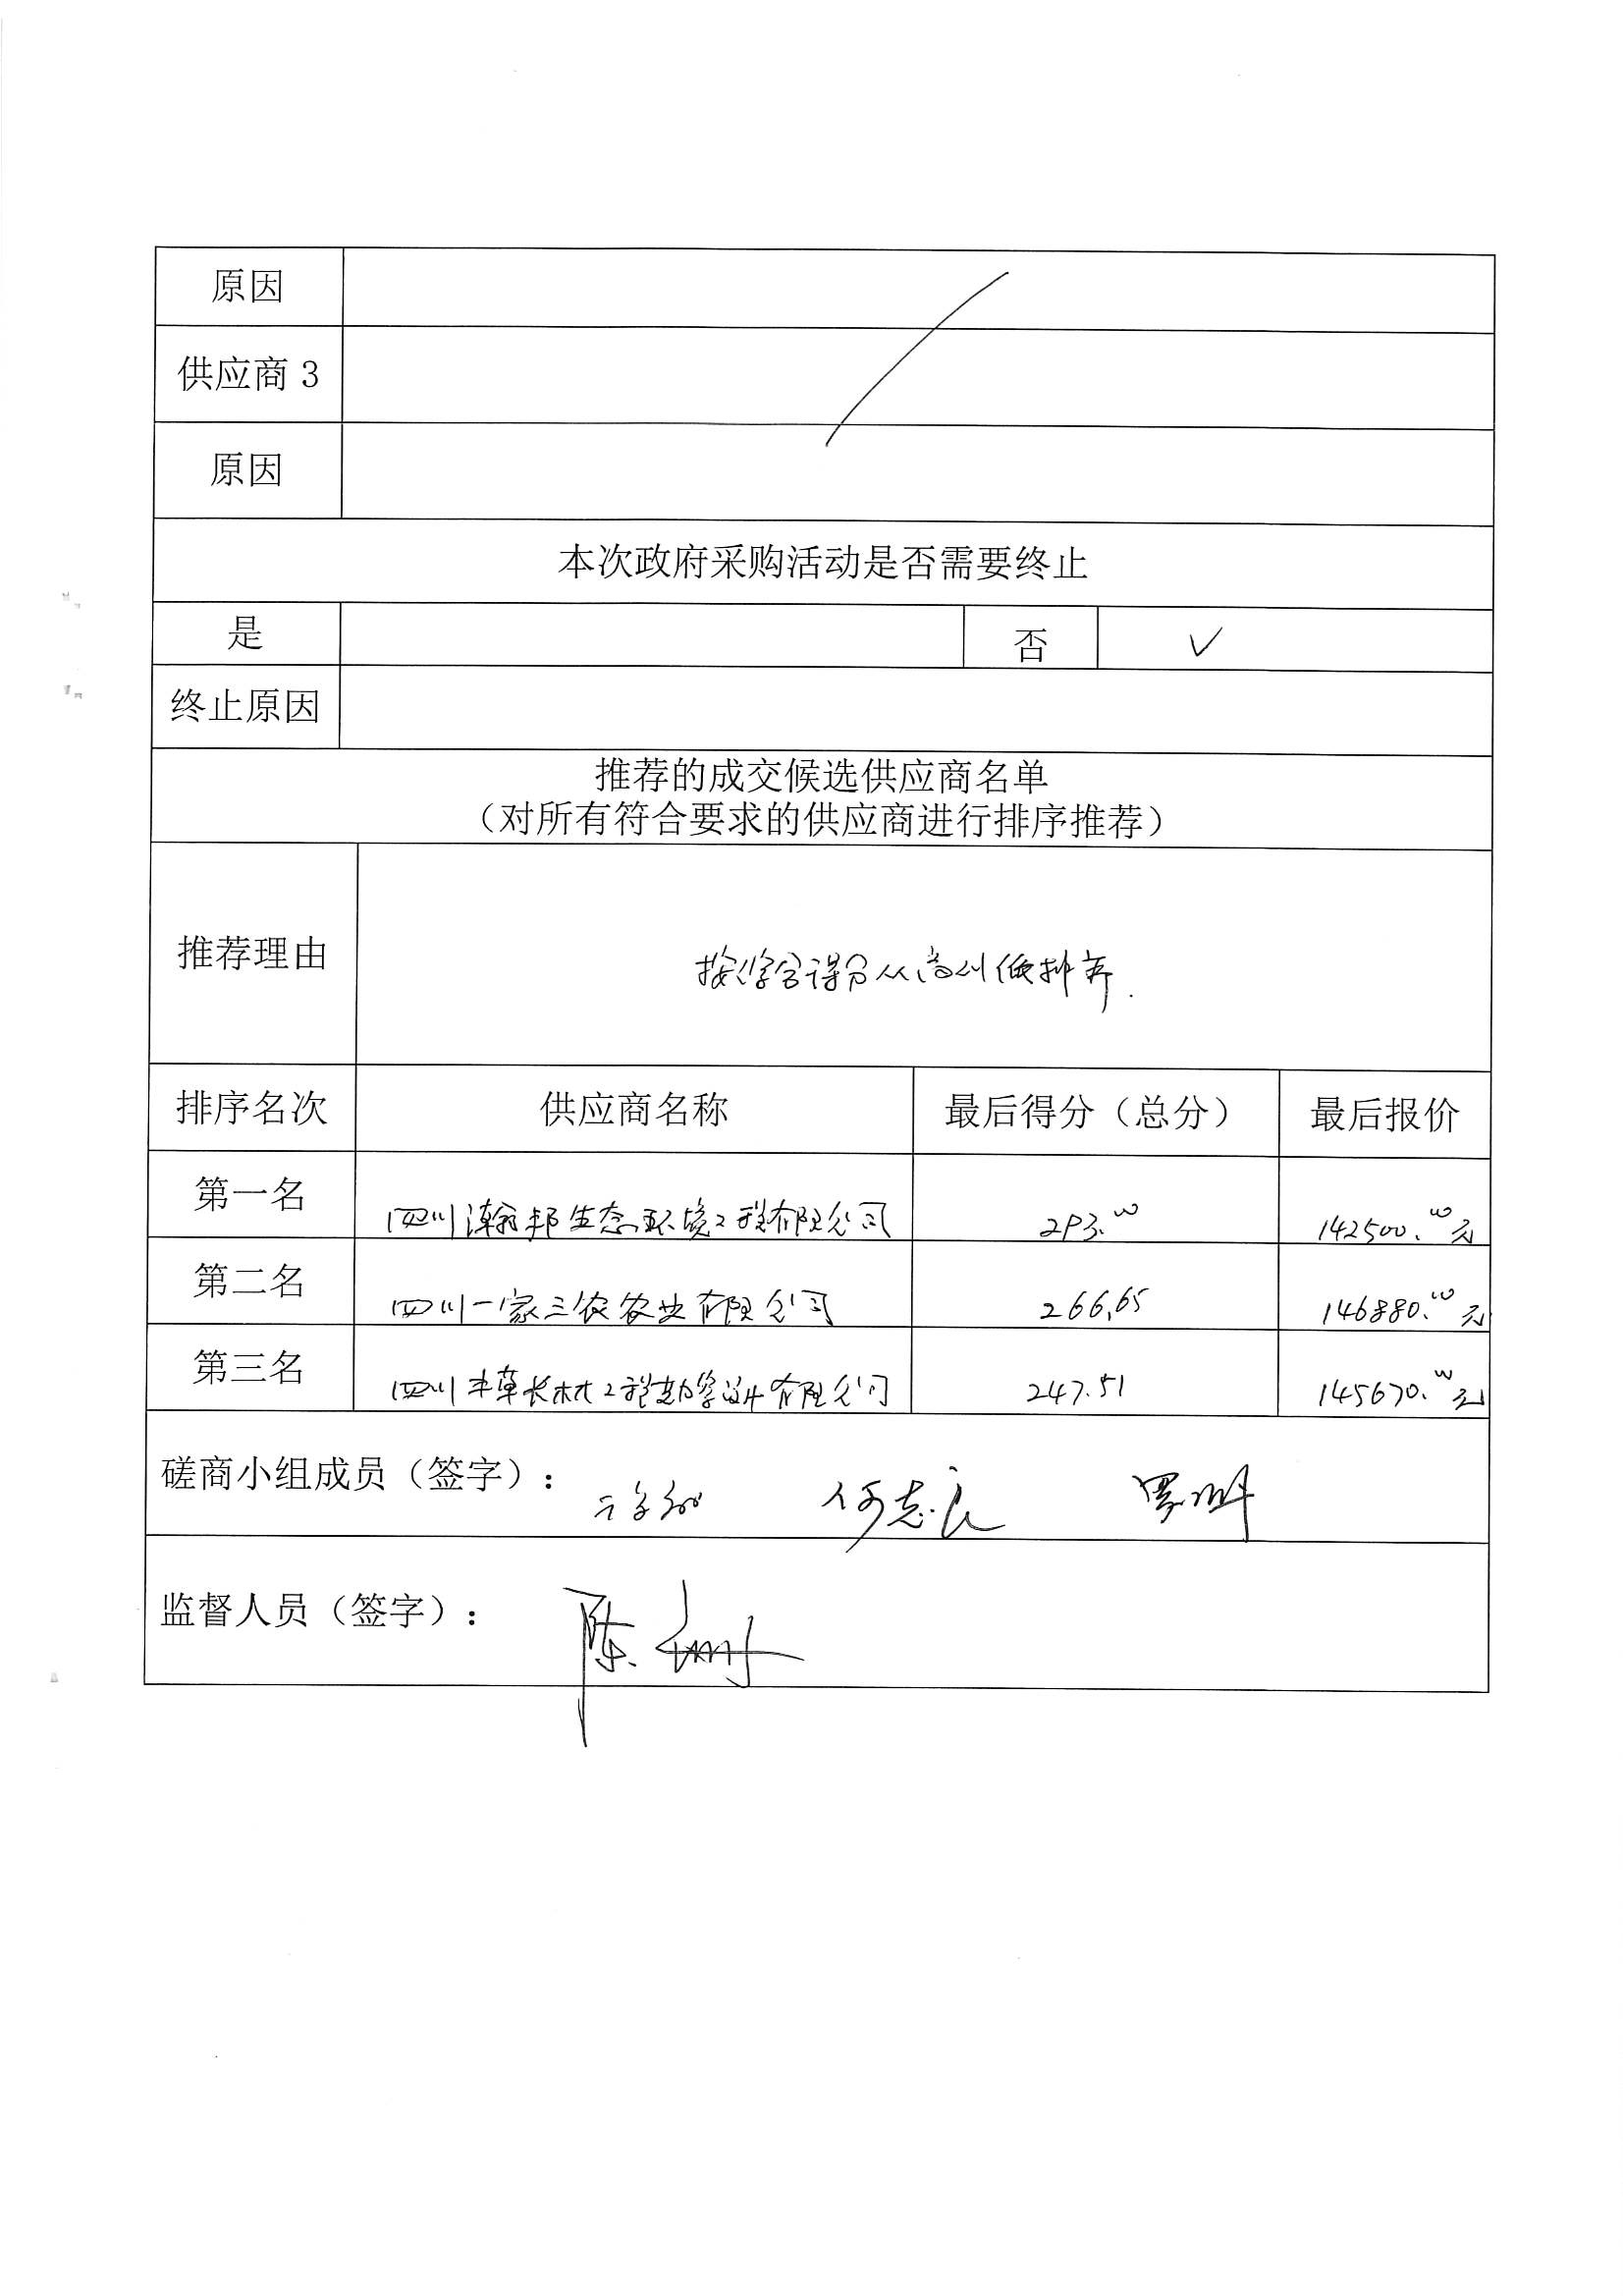 原因
供应商 3
原因
本次政府采购活动是否需要终止
是 否 ✓
终止原因
推荐的成交候选供应商名单
（对所有符合要求的供应商进行排序推荐）
推荐理由 按综合得分从高到低排序.
排序名次 供应商名称 最后得分（总分） 最后报价
第一名 四川瀚邦生态环境工程有限公司 293.00 142500.00元
第二名 四川一家三农农业有限公司 266.65 146880.00元
第三名 四川 工程勘察设计有限公司 247.51 145670.00元
磋商小组成员（签字）： 何志良
监督人员（签字）： 陈